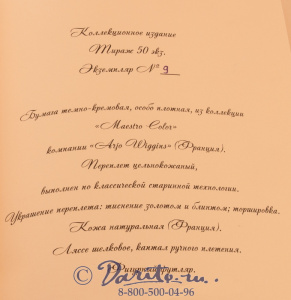 Коллекционное издание
Тираж 50 экз.
Экземпляр № 9
Бумага темно-кремовая, особо плотная, из коллекции
«Maestro Color»
компании «Arjo Wiggins» (Франция).
Переплет цельнокожаный,
выполнен по классической старинной технологии.
Украшение переплета: тиснение золотом и блинтом; торшировка.
Кожа натуральная (Франция).
Ляссе шелковое, каптал ручного плетения.
футляр.
© Darito.ru.
8-800-500-04-96